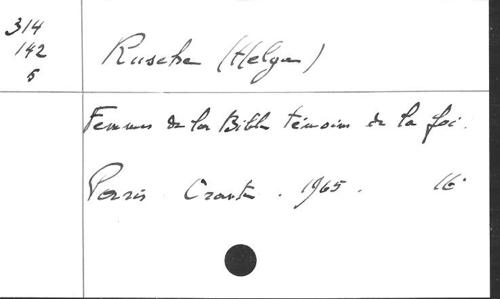 314
142
5
Rusche (Helga)
Femmes de la Bible témoins de la foi.
Paris. Orante. 1965. 16°